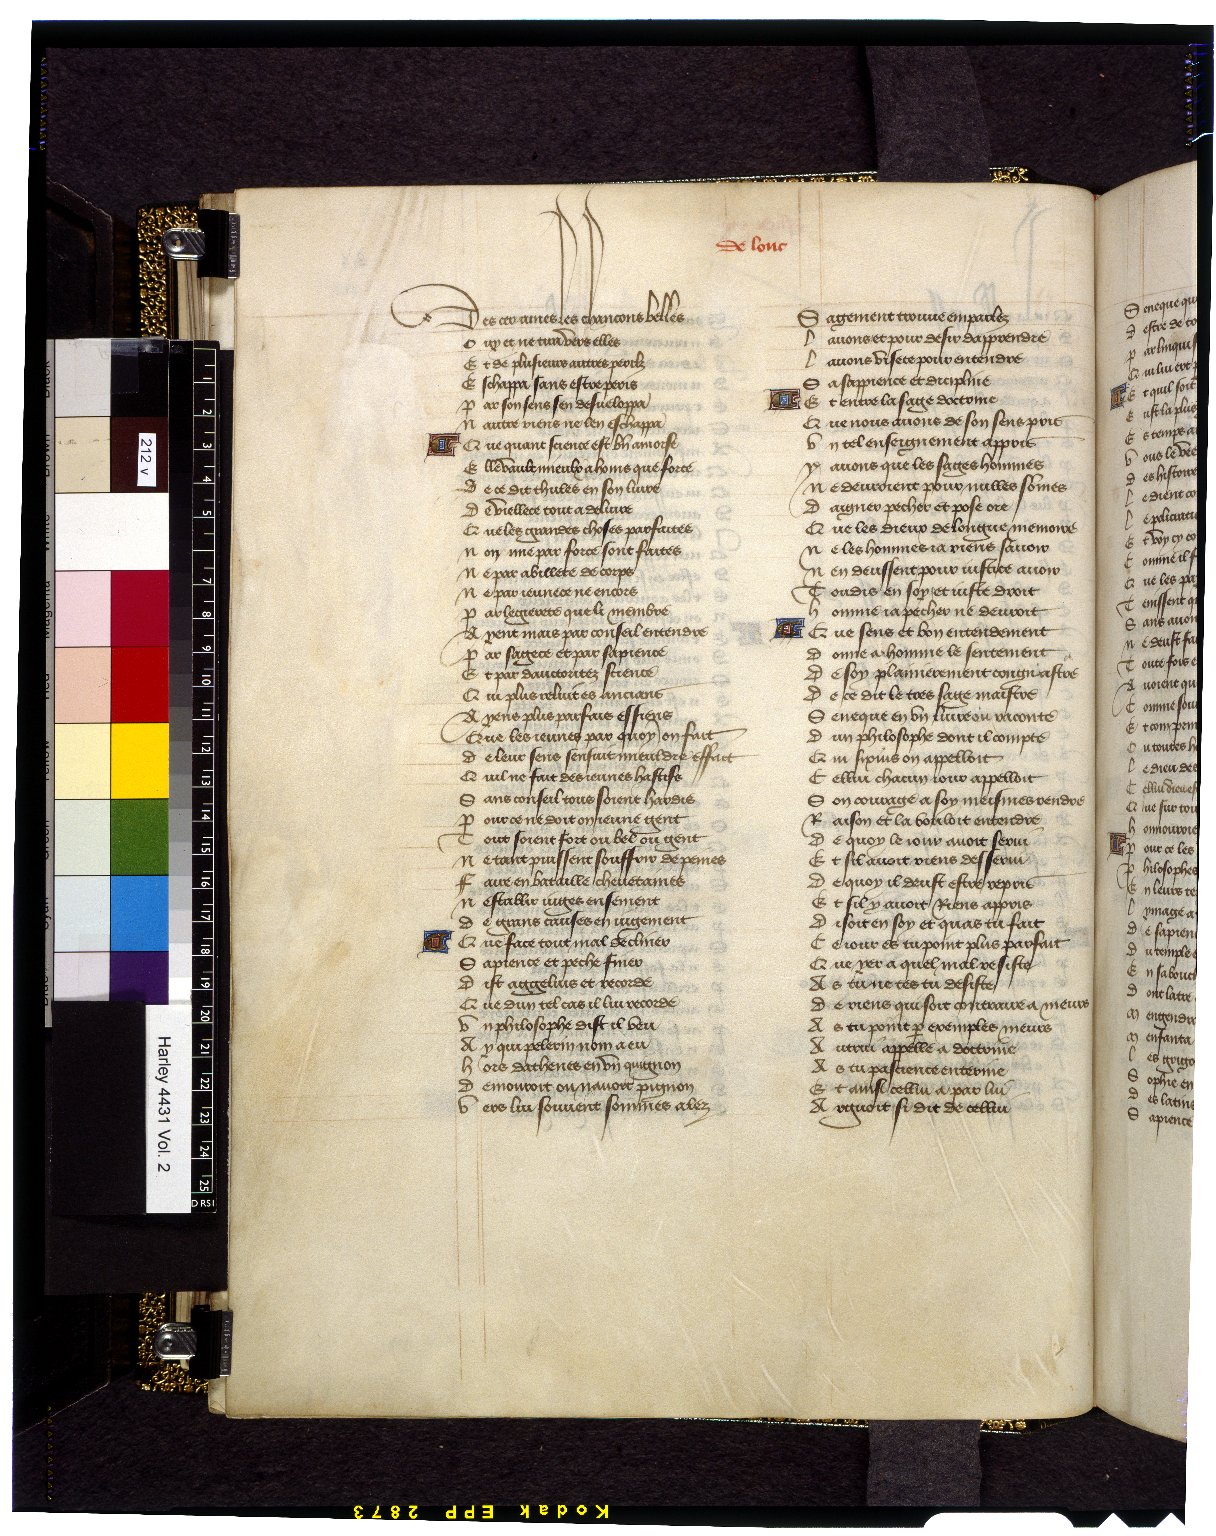 de long
Des ceraines les chancons belles
Ouy et ne tira vers elles
Et de plusieurs autres perilz
Eschappa sans estre peris
Par son sens sen desveloppa
Nautre riens ne len eschappa
Que quant science est bn amorse
Elle vault mieulx a homs que force
De ce dit thules en son livre
De viellece tout a delivre
Que les grandes choses parfaites
Non mie par force sont faites
Ne par abillete de corps
Ne par jeunece ne encors
Par legierete que li membre
Ayent mais par conseil entendre
Par sagece et par sapience
Et par dauctoritez science
Qui plus reluit es ancians
Ayens plus parfais essiens
Que les jeunes par quoy on fait
De leur sens sensuit meuldre effait
Quil ne fait des jeunes hastifs
Sans conseil tous soient hardis
Pour ce ne doit on jeune gent
Tout soient fort ou bel ou gent
Ne tant puissent souffrir de peines
Faire en bataille chevetaines
Nestablir juges ensement
De grans causes en jugement
Que face tout mal decliner
Sapience et peche finer
Dist aggelius et recorde
Que dun tel cas il lui recorde
Un philosophe dist il veu
Ay qui pelerin nom a eu
Hors dathenes en un quignon
Demouroit ou navoit pignon
Vers lui souvent sommes alez
Sagement trouve em parlez
Lavons et pour desir dapprendre
Lavons visete pour entendre
Sa sapience et dicipline
Et entre la sage doctrine
Que nous avons de son sens pris
Un tel enseignement appris
Y avons que les sages hommes
Ne devroient pour nulles sommes
Daigner pecher et pose ore
Que les dieux de longue memoire
Ne les hommes ja riens savoir
Nen deussent pour justice avoir
Toudis en soy et juste droit
Homme ja pecher ne devroit
Que sens et bon entendement
Donne a homme le sentement
De soy plainierement congnoistre
De ce dit le tres sage maistre
Seneque en un livre ou raconte
Dun philosophe dont il compte
Qui sixius on appelloit
Cellui chacun jour appelloit
Son courage a soy meismes rendre
Raison et la vouloit entendre
De quoy le jour avoit servi
Et sil avoit riens desservi
De quoy il deust estre repris
Et sil y avoit Riens appris
Disoit en soy et quas tu fait
Ce jour es tu point plus parfait
Que yer a quel mal resiste
As tu ne tes tu desiste
De riens qui soit contraire a meurs
As tu point p exemples meurs
Autrui appelle a doctrine
As tu pascience enterine
Et ainsi cellui a par lui
Arguoit si dit de cellui
Seneque qu
d estre de co
p ar linqui s
Q ui lui ert p
E t quil soit
E ust la plus
E s temps a
V ous le vee
d es histoire
l e dient co
E t voy cy co
C omme il f
Q ue les pa
T enissent q
S ans avoir
N e deust fai
T oute fois e
A voient qu
C omme sou
E t comprin
O u toutes h
L e dieu des
C ellui dieu es
Q ue sur tou
h onnouroie
P our ce les
P hilosophes
E n leurs te
L ymage a
d e sapien
d u temple e
E n sabouc
D ont latre
M engendre
M enfanta
L es grigo
S ophie en
d es latins
S apience
212 v
Harley 4431 Vol. 2
1
2
3
4
5
7
8
9
10
11
12
13
14
15
16
17
18
19
20
21
22
23
24
25
Kodak EPP 2873